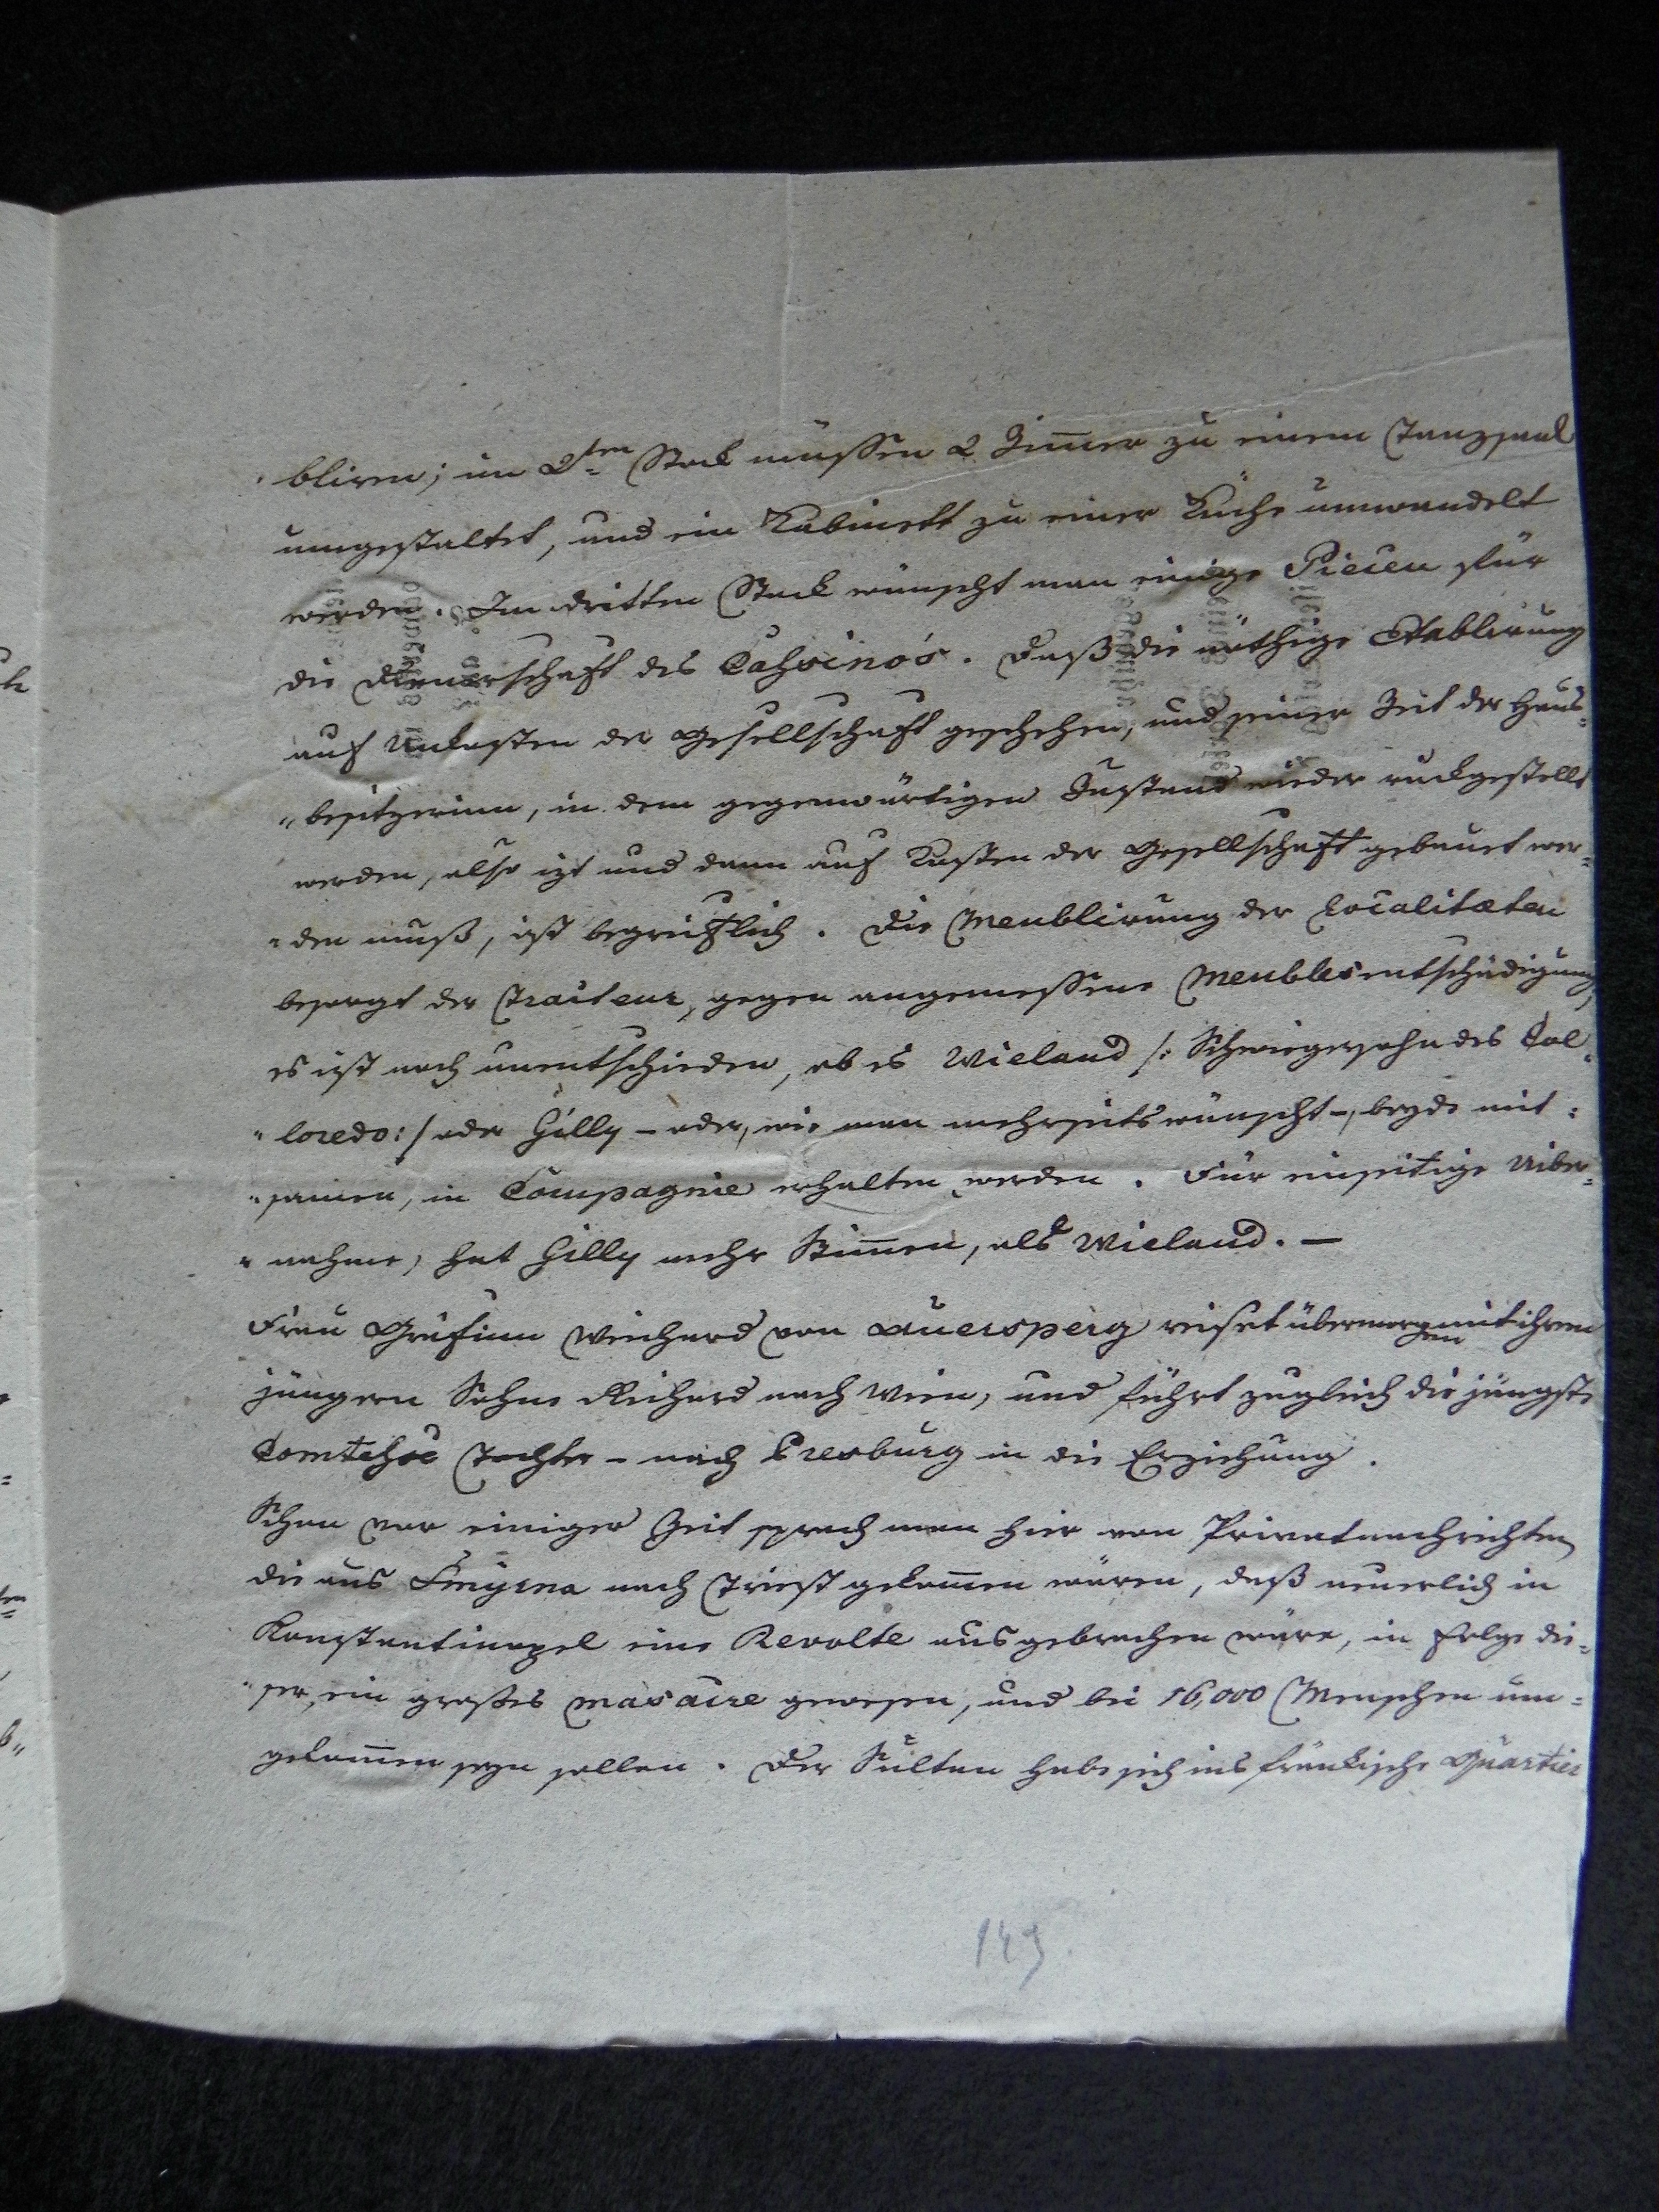 bliren; im 2ten Stock müssen 2 Zimer zu einem Tanzsaal
umgestaltet, und ein Kabinett zu einer Küche umwandelt
werden. Im dritten Stock wünscht man einige Piecen für
die Dienerschaft des Cahsino's. Daß die nöthige Etablirung
auf Unkosten der Gesellschaft geschehen, und seiner Zeit der Haus=
"besitzerinn, in dem gegenwärtigen Zustand wieder rückgestellt
werden, also izt und dann auf Kosten der Gesellschaft gebauet wer=
"den muß, ist begreiflich. Die Meublirung der Localitæten
besorgt der Traiteur, gegen angemessene Meublesentschädigung,
es ist noch unentschieden, ob es Wieland /: Schwiegersohn des Col=
"loredo:/ oder Gilly – oder, wie man mehrseits wünscht –, beyde mit=
"samen, in Compagnie erhalten werden. Für einseitige Uiber=
"nahme, hat Gilly mehr Stimen, als Wieland. –
Frau Gräfinn Weichard von Auersperg reiset übermorgen mit ihrem
jüngern Sohne Richard nach Wien, und führt zugleich die jüngste
Comtehse Tochter – nach Presburg in die Erziehung.
Schon vor einiger Zeit sprach man hier von Privatnachrichten,
die aus Smyrna nach Triest gekomen wären, daß neuerlich in
Konstantinopel eine Revolte ausgebrochen wäre, in Folge die=
"ser, ein großes masacre gewesen, und bei 16,000 Menschen um=
gekomen seyn sollen. Der Sultan habe sich ins fränkische Quartier
149